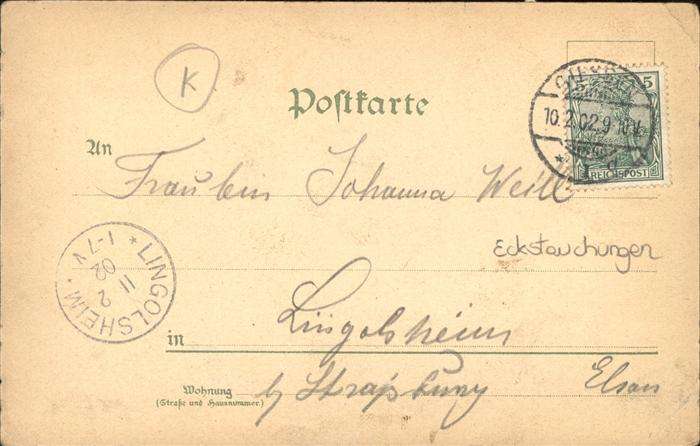 K
Postkarte
5
10.2.02.9-10V.
REICHSPOST
An
Fräulein Johanna Weill
Eckstauchungen
LINGOLSHEIM
11 2 02
1-7 V
in Lingolsheim
Wohnung
(Straße und Hausnummer.)
by Straßburg Elsass